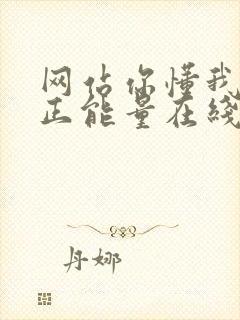 网站你懂我
正能量在线
丹娜